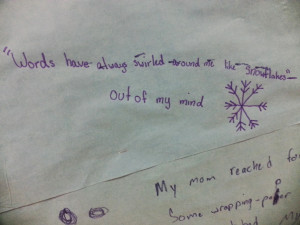 "Words have always swirled around me like snowflakes"
Out of my mind
My mom reached fo
Some wrapping-paper